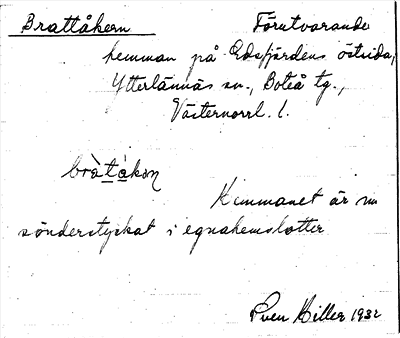 Brattåkern Förutvarande
hemman på Edsfjärdens östsida,
Ytterlännäs sn., Boteå tg.,
Västernorrl. l.
bràtákən
Hemmanet är nu
sönderstyckat i egnahemslotter
Sven Hiller 1932